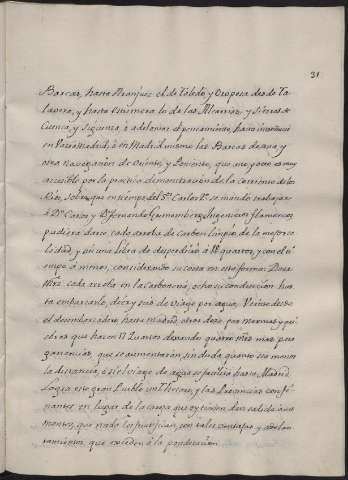 31
Barcas, hasta Aranjuez: el de Toledo, y Oropesa desde Ta
labera, y hasta Estremera lo de las Alcarrias, y Sierras de
Cuenca, y Siguenza, è adelantar el pensamiento, hasta
en Madrid mismo las Barcas de una, y
otra Navegacion de Oriente, y Poniente, que me parece muy
accesible por la practica demonstracion de la corriente de los
Rios, Sobre que en tiempo del Sr. Carlos 2º. se mandò trabajar
à Dn. Carlos y Dn. Fernando Ingenieros flamencos,
pudiera darse cada arroba de carbon limpio de la mejor ca
lidad, y sin una libra de desperdicio à quartos, y con el ti
empo à menos, considerando su costa en esta forma: Doze
mrs. cada arroba en la carbonera, ocho su conduccion has
ta embarcarlo, diez y seis de viage por agua, Veinte desde
el desembarcadero, hasta Madrid, otros doze por mermas, y qui
ebras que hacen 17 Quartos dexando quatro mrs. mas para
ganancias, que se aumentaràn sin duda quanto sea menor
la distancia, ò si el viage de agua se facilita hasta Madrid.
Logra este gran Pueblo un Thesoro, y las Provincias confi
nantes, en lugar de la carga que oy tienen dan salida à sus
montes, que nada les fructifican, con tales ventajas, y adelan
tamientos, que exceden à la ponderacion.